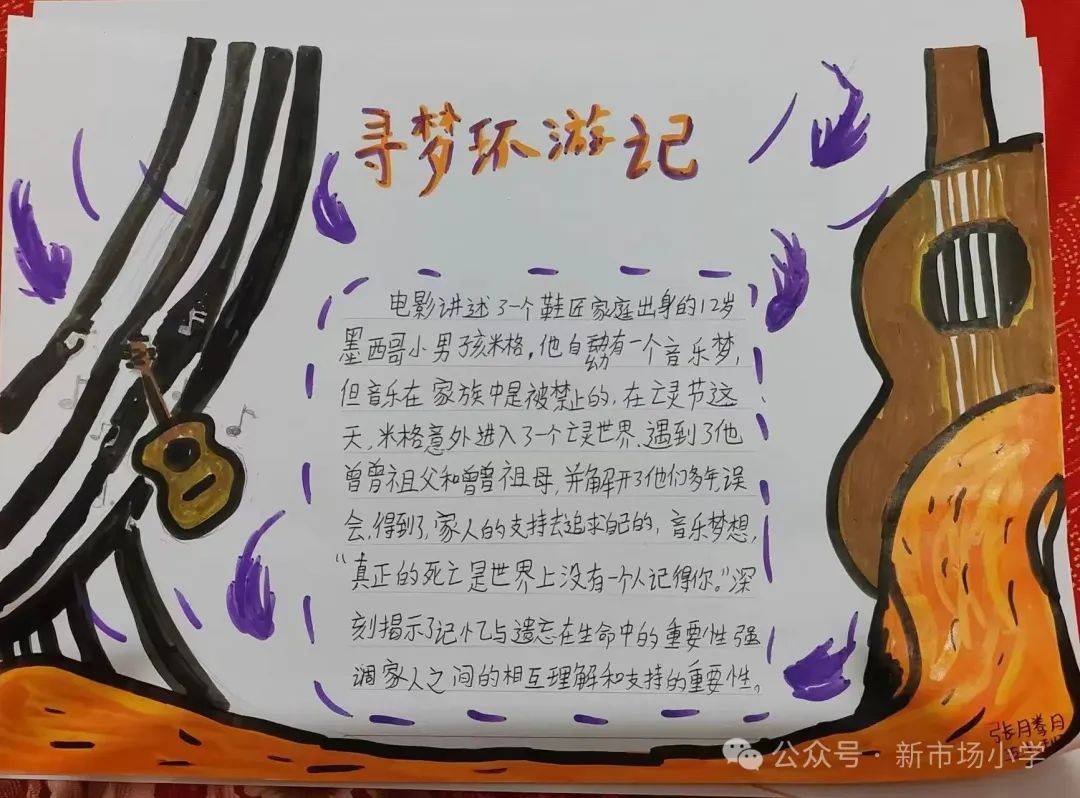 寻梦环游记
电影讲述了一个鞋匠家庭出身的12岁
墨西哥小男孩米格,他自幼有一个音乐梦,
但音乐在家族中是被禁止的,在亡灵节这
天,米格意外进入了一个亡灵世界,遇到了他
曾曾祖父和曾曾祖母,并解开了他们多年误
会,得到了,家人的支持去追求自己的,音乐梦想,
"真正的死亡是世界上没有一个人记得你。"深
刻揭示了记忆与遗忘在生命中的重要性强
调家人之间的相互理解和支持的重要性。
公众号·新市场小学